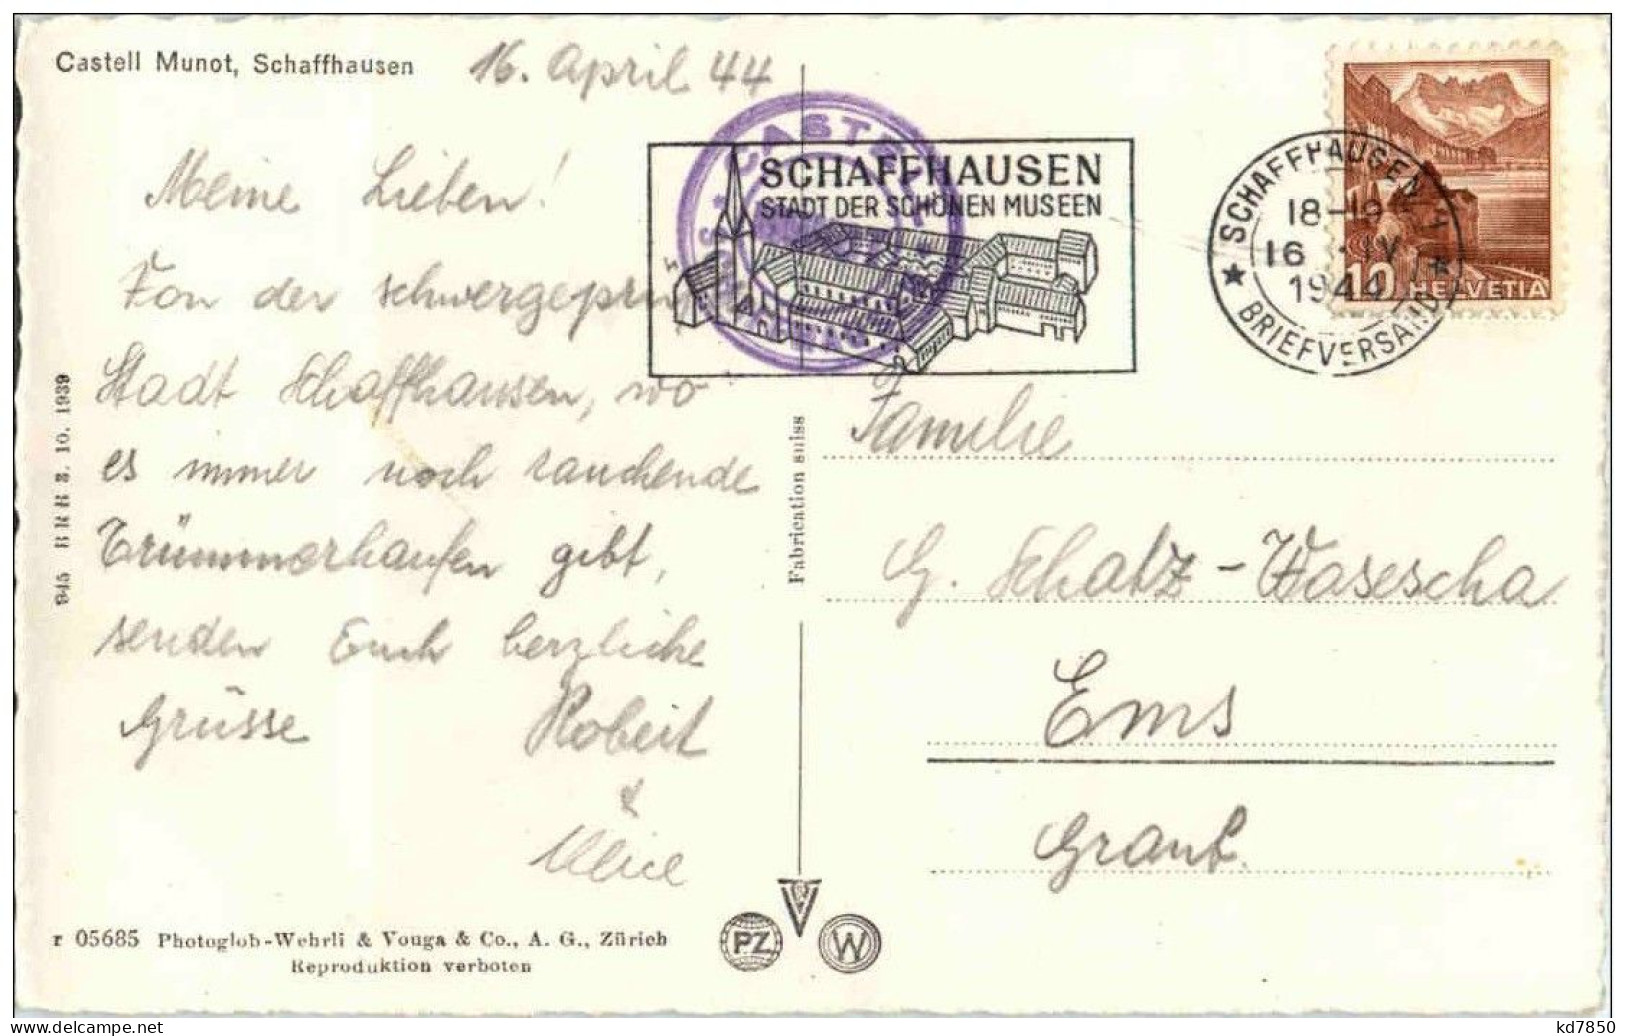 Castell Munot, Schaffhausen
16. April 44
Meine Lieben!
Von der schwergeprüf
Stadt Schaffhausen, wo
es immer noch rauchende
Trümmerhaufen gibt,
senden Euch herzliche
Grüsse Robert
&
Alice
945 BRB 3. 10. 1939
r 05685 Photoglob-Wehrli & Vouga & Co., A. G., Zürich
Reproduktion verboten
Fabrication suisse
PZ
W
CASTELL
SCHAFFHAUSEN
STADT DER SCHÖNEN MUSEEN
SCHAFFHAUSEN 1
18-19
16. IV.
1944
BRIEFVERSAND
10 HELVETIA
Familie
G. Schatz-Vasescha
Ems
Graub.
kd7850